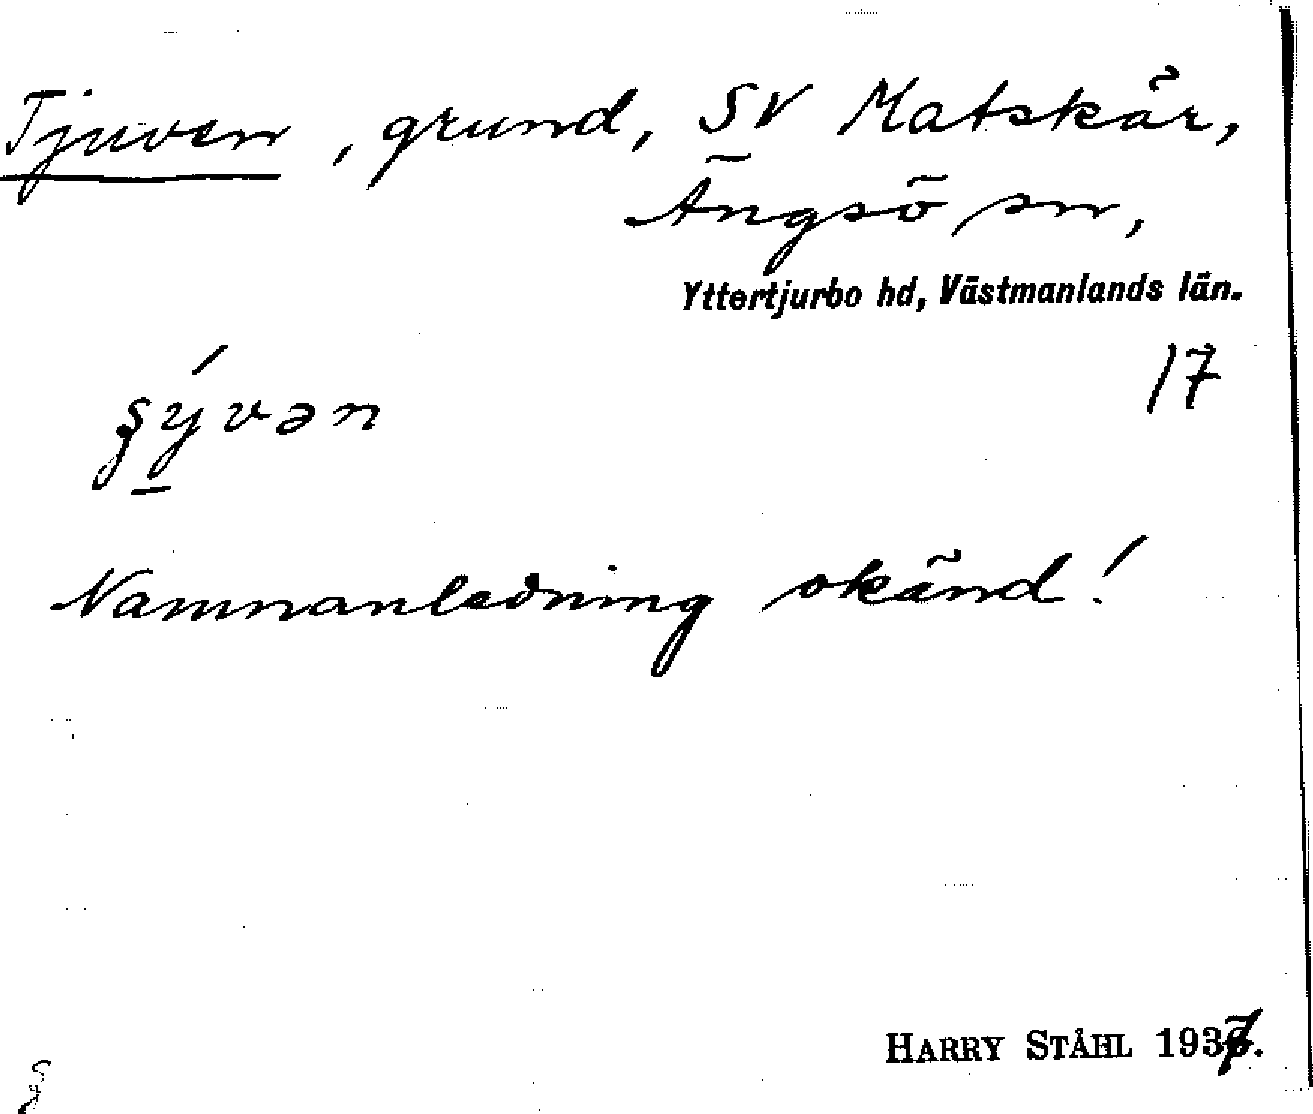 Tjuven, grund, SV Matskär,
Ängsö sn,
Yttertjurbo hd, Västmanlands län.
17
Namnanledning okänd!
HARRY STÅHL 1937.